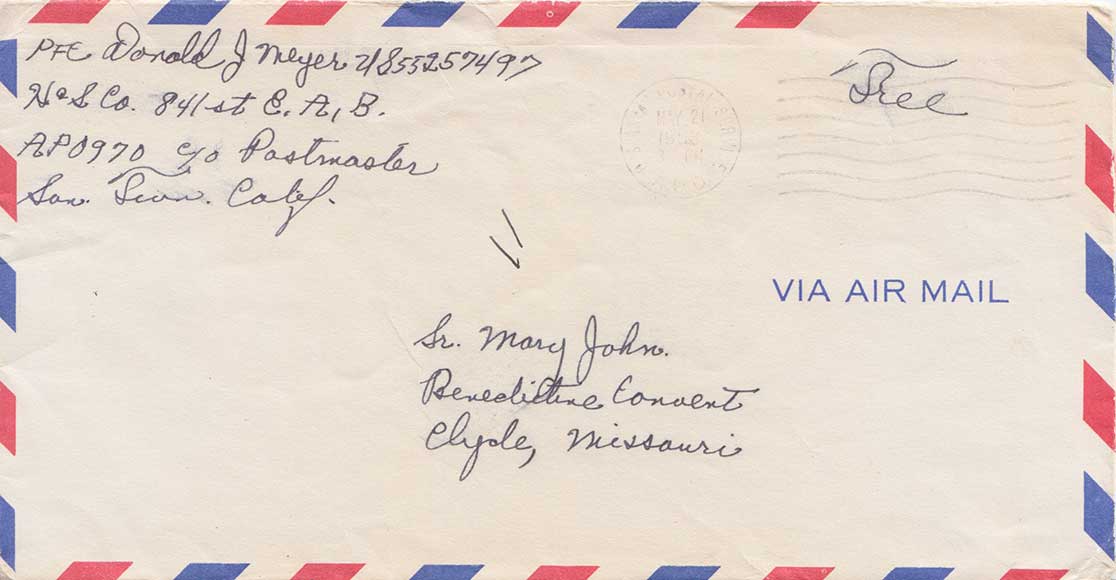 PFC Donald J Meyer US55257497
H&S Co. 841st E.A.B.
APO970 c/o Postmaster
San. Fran. Calif.
Free
POSTAL SERVICE
MAY 21
VIA AIR MAIL
Sr. Mary John.
Benedictine Convent
Clyde, Missouri